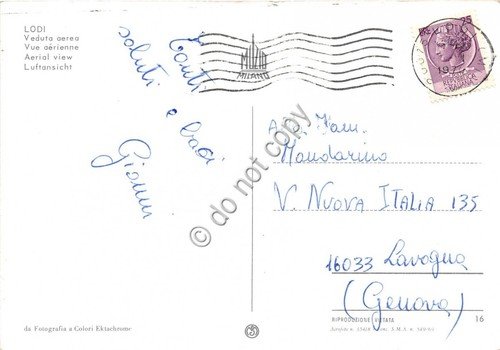 LODI
Veduta aerea
Vue aérienne
Aerial view
Luftansicht
Tanti
saluti e baci
Gianni
MILANO
25
197
do not copy
Fam.
Mandarino
V. NUOVA ITALIA 135
16033 Lavagna
(Genova)
da Fotografia a Colori Ektachrome
RIPRODUZIONE VIETATA
16